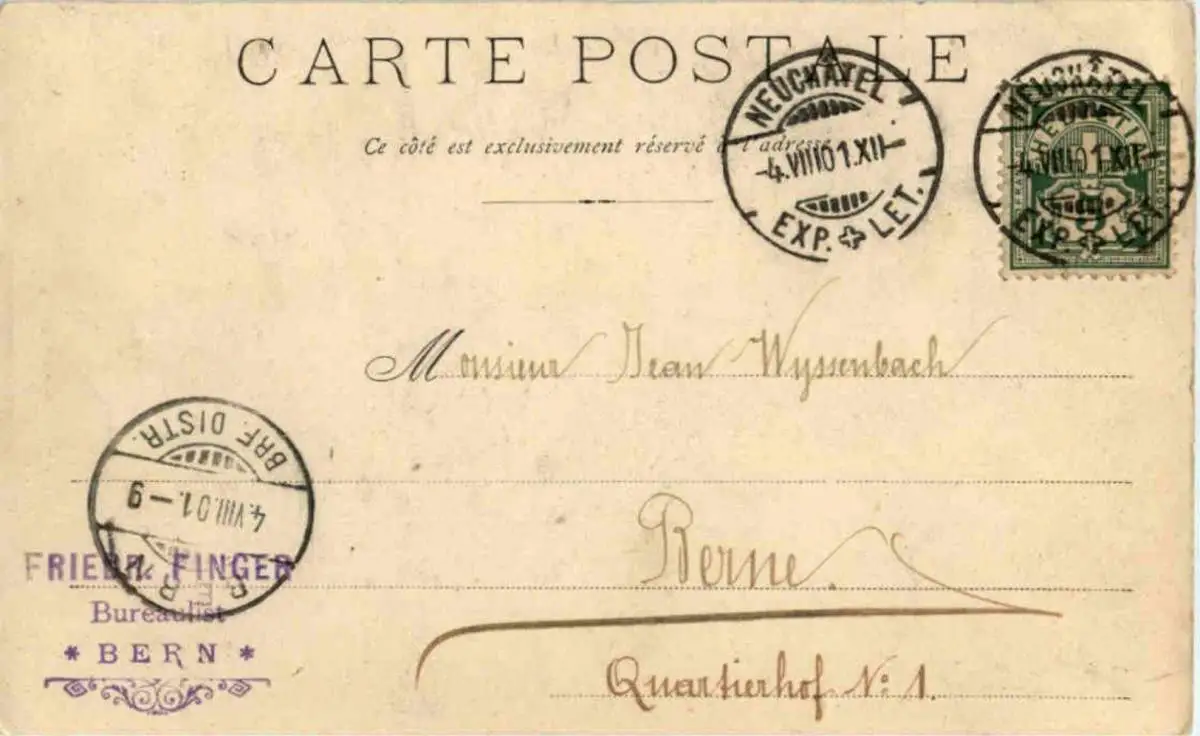 CARTE POSTALE
Ce côté est exclusivement réservé à l'adresse
NEUCHÂTEL
-4.VIII01.XII-
EXP. LET.
NEUCHÂTEL
-4.VIII01.XII-
EXP. LET.
HELVETIA
FRANCO
5
Monsieur Jean Wyssenbach
Berne.
Quartierhof No: 1.
BERN 1
4.VIII.01.-9
BRF. DISTR.
FRIEDR. FINGER
Bureaulist
* BERN *